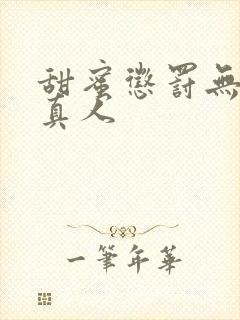 甜蜜懲罰無
真人
一筆年華